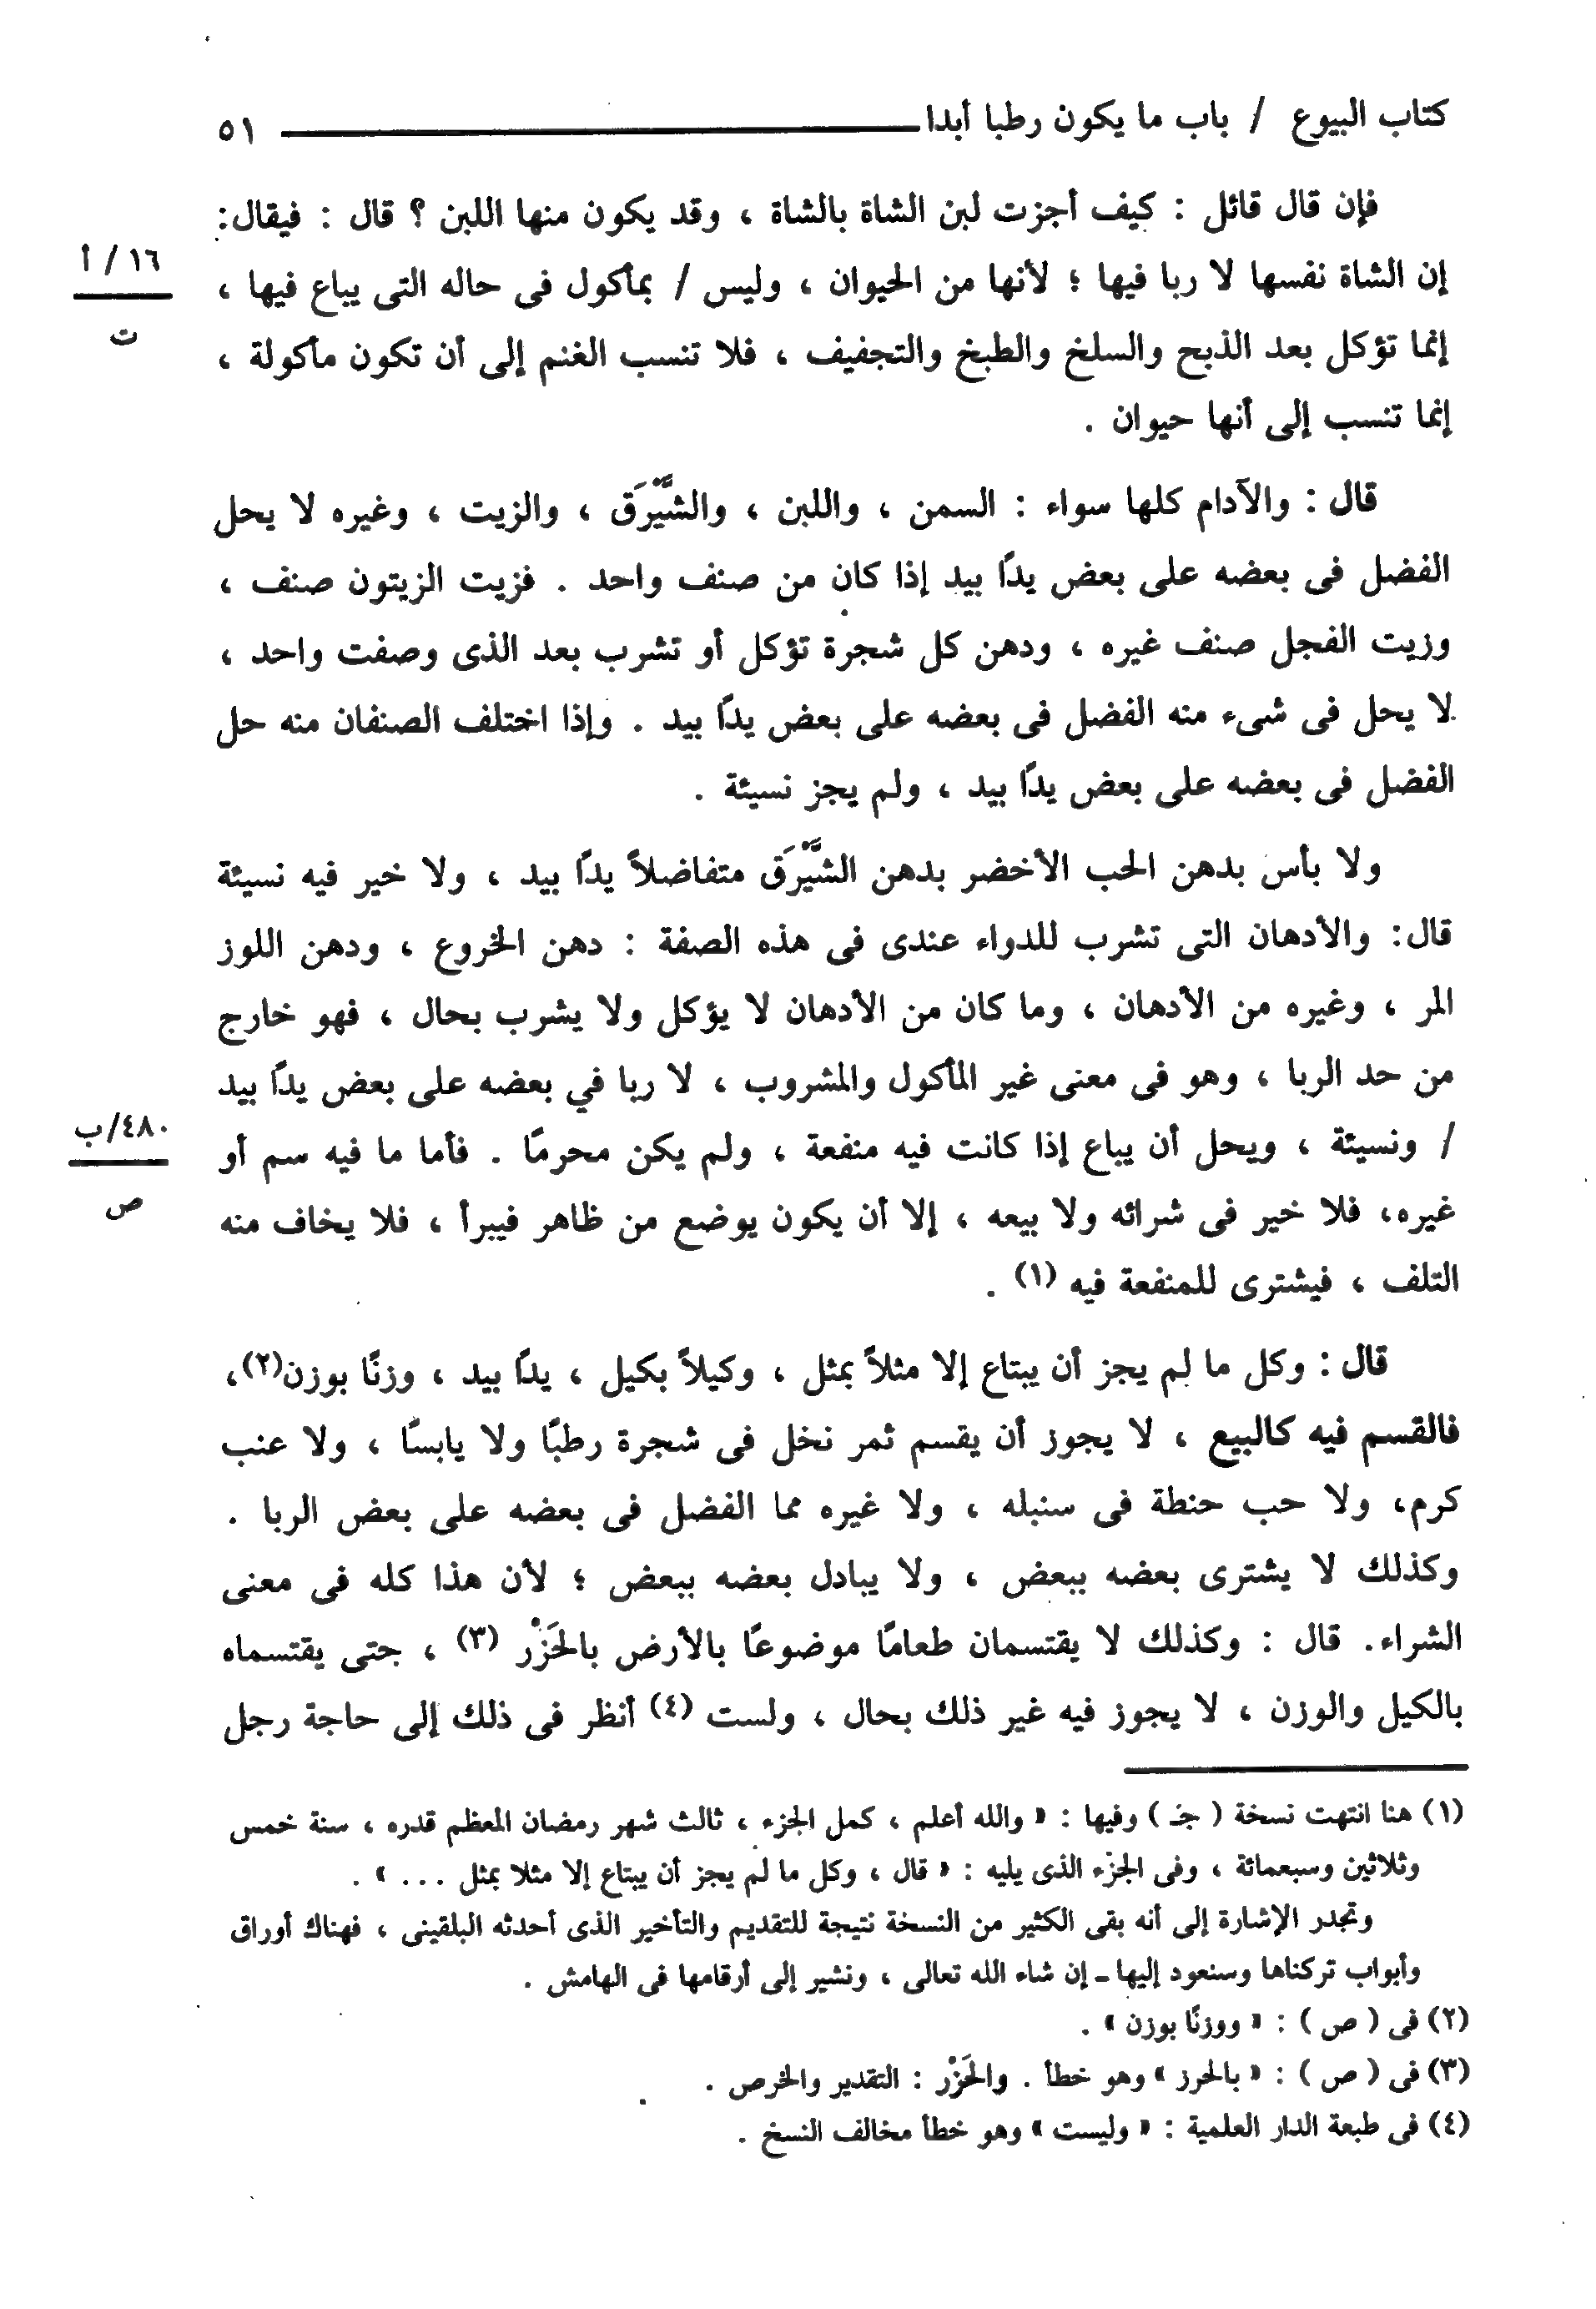 كتاب البيوع / باب ما يكون رطبا أبدا ٥١
فإن قال قائل : كيف أجزت لبن الشاة بالشاة ، وقد يكون منها اللبن ؟ قال : فيقال:
إن الشاة نفسها لا ربا فيها ؛ لأنها من الحيوان ، وليس / بمأكول فى حاله التى يباع فيها ،
١٦ / أ
ت
إنما تؤكل بعد الذبح والسلخ والطبخ والتجفيف ، فلا تنسب الغنم إلى أن تكون مأكولة ،
إنما تنسب إلى أنها حيوان .
قال : والآدام كلها سواء : السمن ، واللبن ، والشَّيْرَق ، والزيت ، وغيره لا يحل
الفضل فى بعضه على بعض يدًا بيد إذا كان من صنف واحد . فزيت الزيتون صنف ،
وزيت الفجل صنف غيره ، ودهن كل شجرة تؤكل أو تشرب بعد الذى وصفت واحد ،
لا يحل فى شىء منه الفضل فى بعضه على بعض يدًا بيد . وإذا اختلف الصنفان منه حل
الفضل فى بعضه على بعض يدًا بيد ، ولم يجز نسيئة .
ولا بأس بدهن الحب الأخضر بدهن الشَّيْرَق متفاضلاً يدًا بيد ، ولا خير فيه نسيئة
قال: والأدهان التى تشرب للدواء عندى فى هذه الصفة : دهن الخروع ، ودهن اللوز
المر ، وغيره من الأدهان ، وما كان من الأدهان لا يؤكل ولا يشرب بحال ، فهو خارج
من حد الربا ، وهو فى معنى غير المأكول والمشروب ، لا ربا في بعضه على بعض يدًا بيد
/ ونسيئة ، ويحل أن يباع إذا كانت فيه منفعة ، ولم يكن محرمًا . فأما ما فيه سم أو
٤٨٠/ب
ص
غيره، فلا خير فى شرائه ولا بيعه ، إلا أن يكون يوضع من ظاهر فيبرأ ، فلا يخاف منه
التلف ، فيشترى للمنفعة فيه (١) .
قال : وكل ما لم يجز أن يبتاع إلا مثلاً بمثل ، وكيلاً بكيل ، يدًا بيد ، وزنًا بوزن(٢)،
فالقسم فيه كالبيع ، لا يجوز أن يقسم ثمر نخل فى شجرة رطبًا ولا يابسًا ، ولا عنب
كرم، ولا حب حنطة فى سنبله ، ولا غيره مما الفضل فى بعضه على بعض الربا .
وكذلك لا يشترى بعضه ببعض ، ولا يبادل بعضه ببعض ؛ لأن هذا كله فى معنى
الشراء. قال : وكذلك لا يقتسمان طعامًا موضوعًا بالأرض بالحَزْر (٣) ، حتى يقتسماه
بالكيل والوزن ، لا يجوز فيه غير ذلك بحال ، ولست (٤) أنظر فى ذلك إلى حاجة رجل
(١) هنا انتهت نسخة ( جـ ) وفيها : « والله أعلم ، كمل الجزء ، ثالث شهر رمضان المعظم قدره ، سنة خمس
وثلاثين وسبعمائة ، وفى الجزء الذى يليه : « قال ، وكل ما لم يجز أن يبتاع إلا مثلا بمثل ... » .
وتجدر الإشارة إلى أنه بقى الكثير من النسخة نتيجة للتقديم والتأخير الذى أحدثه البلقينى ، فهناك أوراق
وأبواب تركناها وسنعود إليها ـ إن شاء الله تعالى ، ونشير إلى أرقامها فى الهامش .
(٢) فى ( ص ) : « ووزنًا بوزن » .
(٣) فى ( ص ) : « بالحرز » وهو خطأ . والحَزْر : التقدير والخرص .
(٤) فى طبعة الدار العلمية : « وليست » وهو خطأ مخالف النسخ .